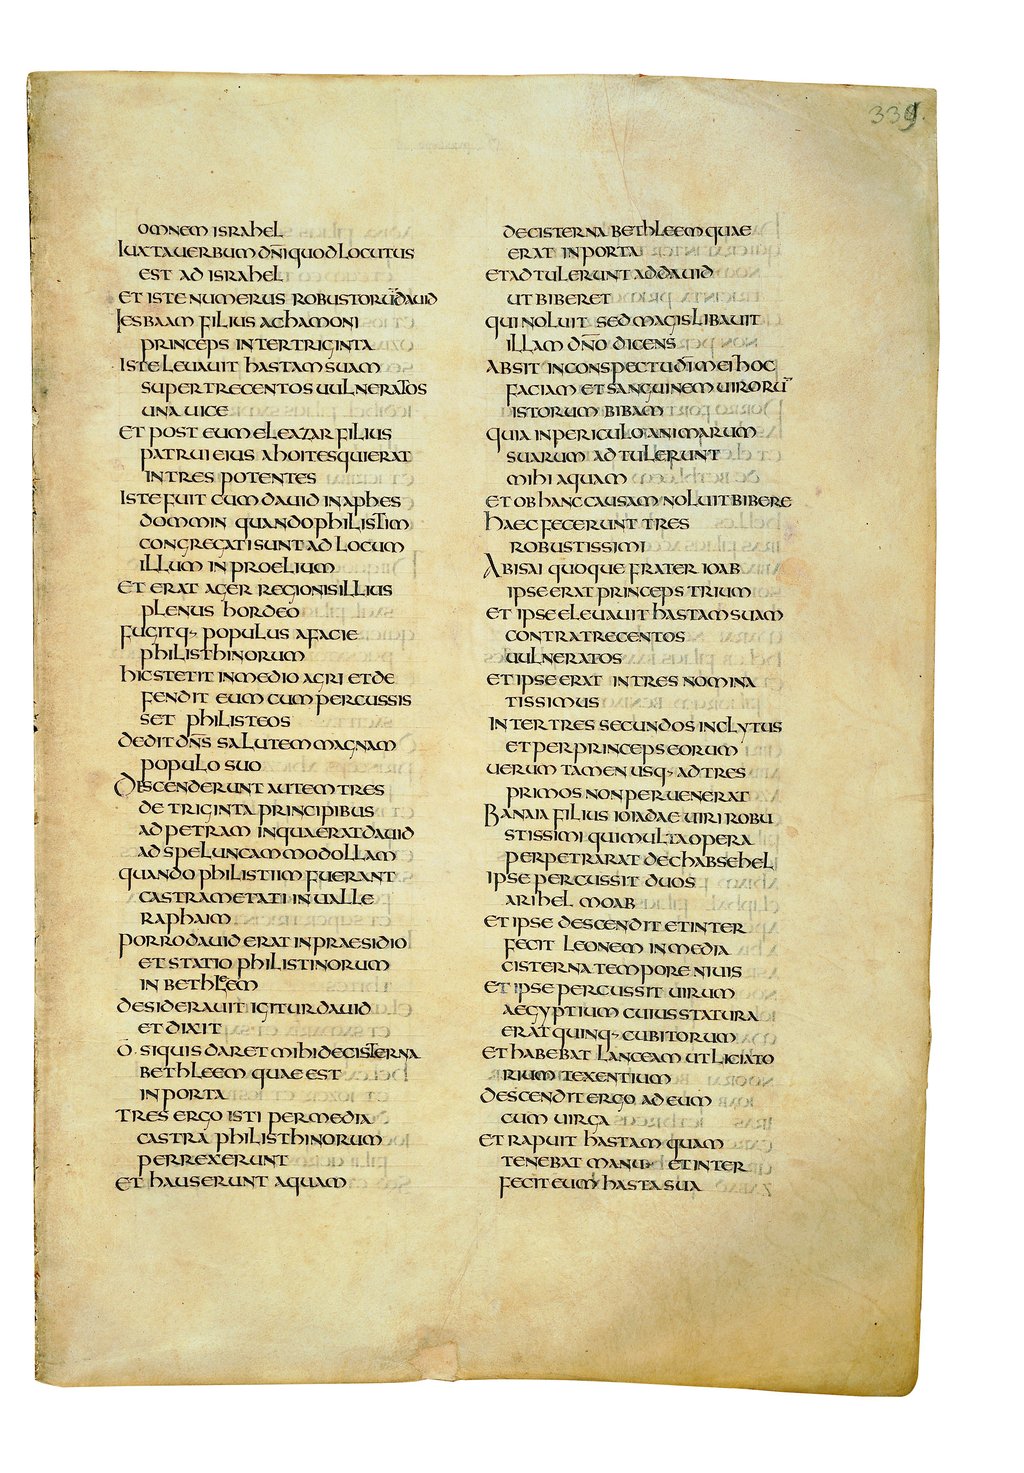 339.
omnem israhel
Iuxta uerbum dñi quod locutus
est ad israhel
et iste numerus robustorū dauid
Iesbaam filius achamoni
princeps inter triginta
iste leuauit hastam suam
super trecentos uulneratos
una uice
et post eum eleazar filius
patrui eius ahoites qui erat
inter tres potentes
iste fuit cum dauid in aphes
dommin quando philistim
congregati sunt ad locum
illum in proelium
et erat ager regionis illius
plenus hordeo
fugitq· populus a facie
philisthinorum
hic stetit in medio agri et de
fendit eum cumpercussis
set philisteos
dedit dñs salutem magnam
populo suo
Discenderunt autem tres
de triginta principibus
ad petram in qua erat dauid
ad speluncam modollam
quando philistiim fuerant
castra metati in ualle
raphaim
porro dauid erat in praesidio
et statio philistinorum
in bethleem
desiderauit igitur dauid
et dixit
o· siquis daret mihi de cisterna
bethleem quae est
in porta
tres ergo isti per media
castra philisthinorum
perrexerunt
et hauserunt aquam
de cisterna bethleem quae
erat in porta
et adtulerunt ad dauid
ut biberet
qui noluit sed magis libauit
illam dño dicens
absit in conspectu dī mei hoc
faciam et sanguinem uirorū
istorum bibam
quia in periculo animarum
suarum adtulerunt
mihi aquam
et ob hanc causam noluit bibere
haec fecerunt tres
robustissimi
Abisai quoque frater ioab
ipse erat princeps trium
et ipse eleuauit hastam suam
contra trecentos
uulneratos
et ipse erat in tres nomina
tissimus
inter tres secundos inclytus
et per princeps eorum
uerum tamen usq· ad tres
primos non peruenerat
Banaia filius ioiadae uiri robu
stissimi qui multa opera
perpetrarat de chabsehel
ipse percussit duos
arihel moab
et ipse descendit et inter
fecit leonem in media
cisterna tempore niuis
et ipse percussit uirum
aegyptium cuius statura
erat quinq· cubitorum
et habebat lanceam ut liciato
rium texentium
descendit ergo ad eum
cum uirga
et rapuit hastam quam
tenebat manu· et inter
fecit eum hasta sua